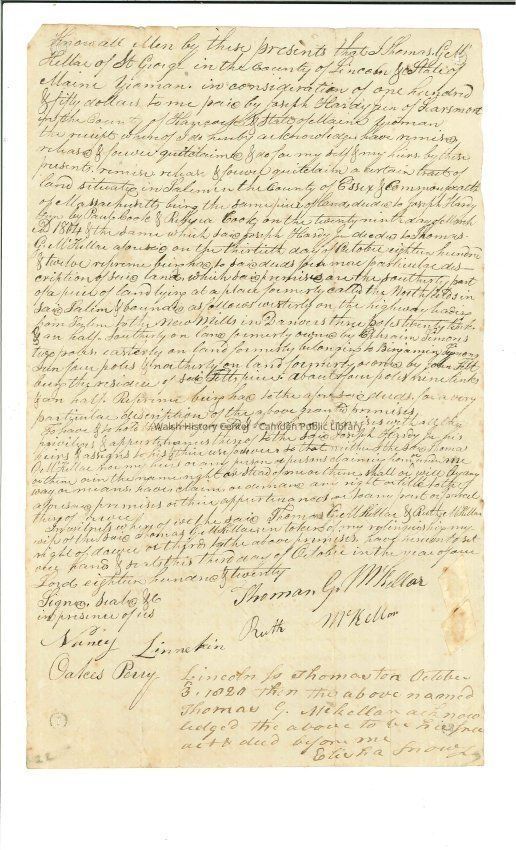 Know all Men by these presents that I Thomas G. Mc
Kellar of St George in the County of Lincoln & State of
Maine Yeoman in consideration of one hundred
& fifty dollars to me paid by Joseph Hardy of Searsmont
in the County of Hancock & State of Maine Yeoman
the receipt whereof I do hereby acknowledge have remised
released & forever quitclaimed & do for my self & my heirs by these
presents remise release & forever quitclaim a certain tract of
land situate in Salem in the County of Essex & Commonwealth
of Massachusetts being the same piece of land deeded to Joseph Hardy
by Paul Cook & Cook on the twenty ninth day of March
AD 1804 & the same which said Joseph Hardy deeded to Thomas
G. McKellar on the thirtieth day of October eighteen hundred
& twelve reference being had to said deeds for a more particular des-
cription of said land, which said premises are the southerly part
of a piece of land lying at a place formerly called the Northfields in
said Salem & bounded as follows westerly on the highway leading
from Salem to the New Mills in Danvers three poles twenty links
& an half Southerly on land formerly owned by Ephraim
two poles easterly on land formerly belonging to Benjamin
four poles & northerly on land formerly owned by John Felt
being the residue of said piece about four poles nine links
& an half Reference being had to the aforesaid deeds for a very
particular description of the above granted premises,
To have & to hold with all the
Walsh History Center - Camden Public Library
privileges & appurtenances thereof to the said Joseph Hardy his
heirs & assigns to his & their use forever so that neither I the said Thomas
G. McKellar nor my heirs or any other person or persons claiming from or under me
or them or in the name right or stead of me or them shall or will by any
way or means have claim or demand any right or title to the
aforesaid premises or their appurtenances or to any part or parcel
thereof forever
In witness whereof we the said Thomas G. McKellar & Ruth McKellar
wife of the said Thomas G. McKellar in token of my relinquishing my
right of dower or thirds to the above premises have hereunto set
our hands & seals this third day of October in the year of our
Lord eighteen hundred & twenty
Signed, seald &c
in presence of us
Thomas G. McKellar
Ruth McKellar
Nancy Linnekin
Oakes Perry
Lincoln ss Thomaston October
3, 1820 then the above named
Thomas G. Mckellan acknow
ledged the above to be his free
act & deed before me
Elisha Snow
22